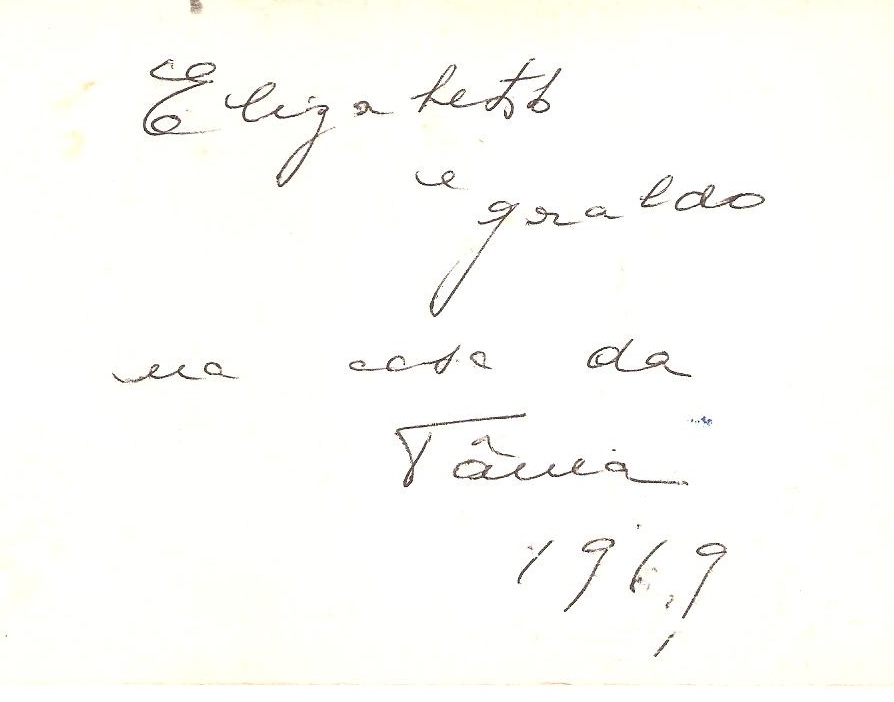 Elizabeth
e
graldo
na casa da
Tânia
1969